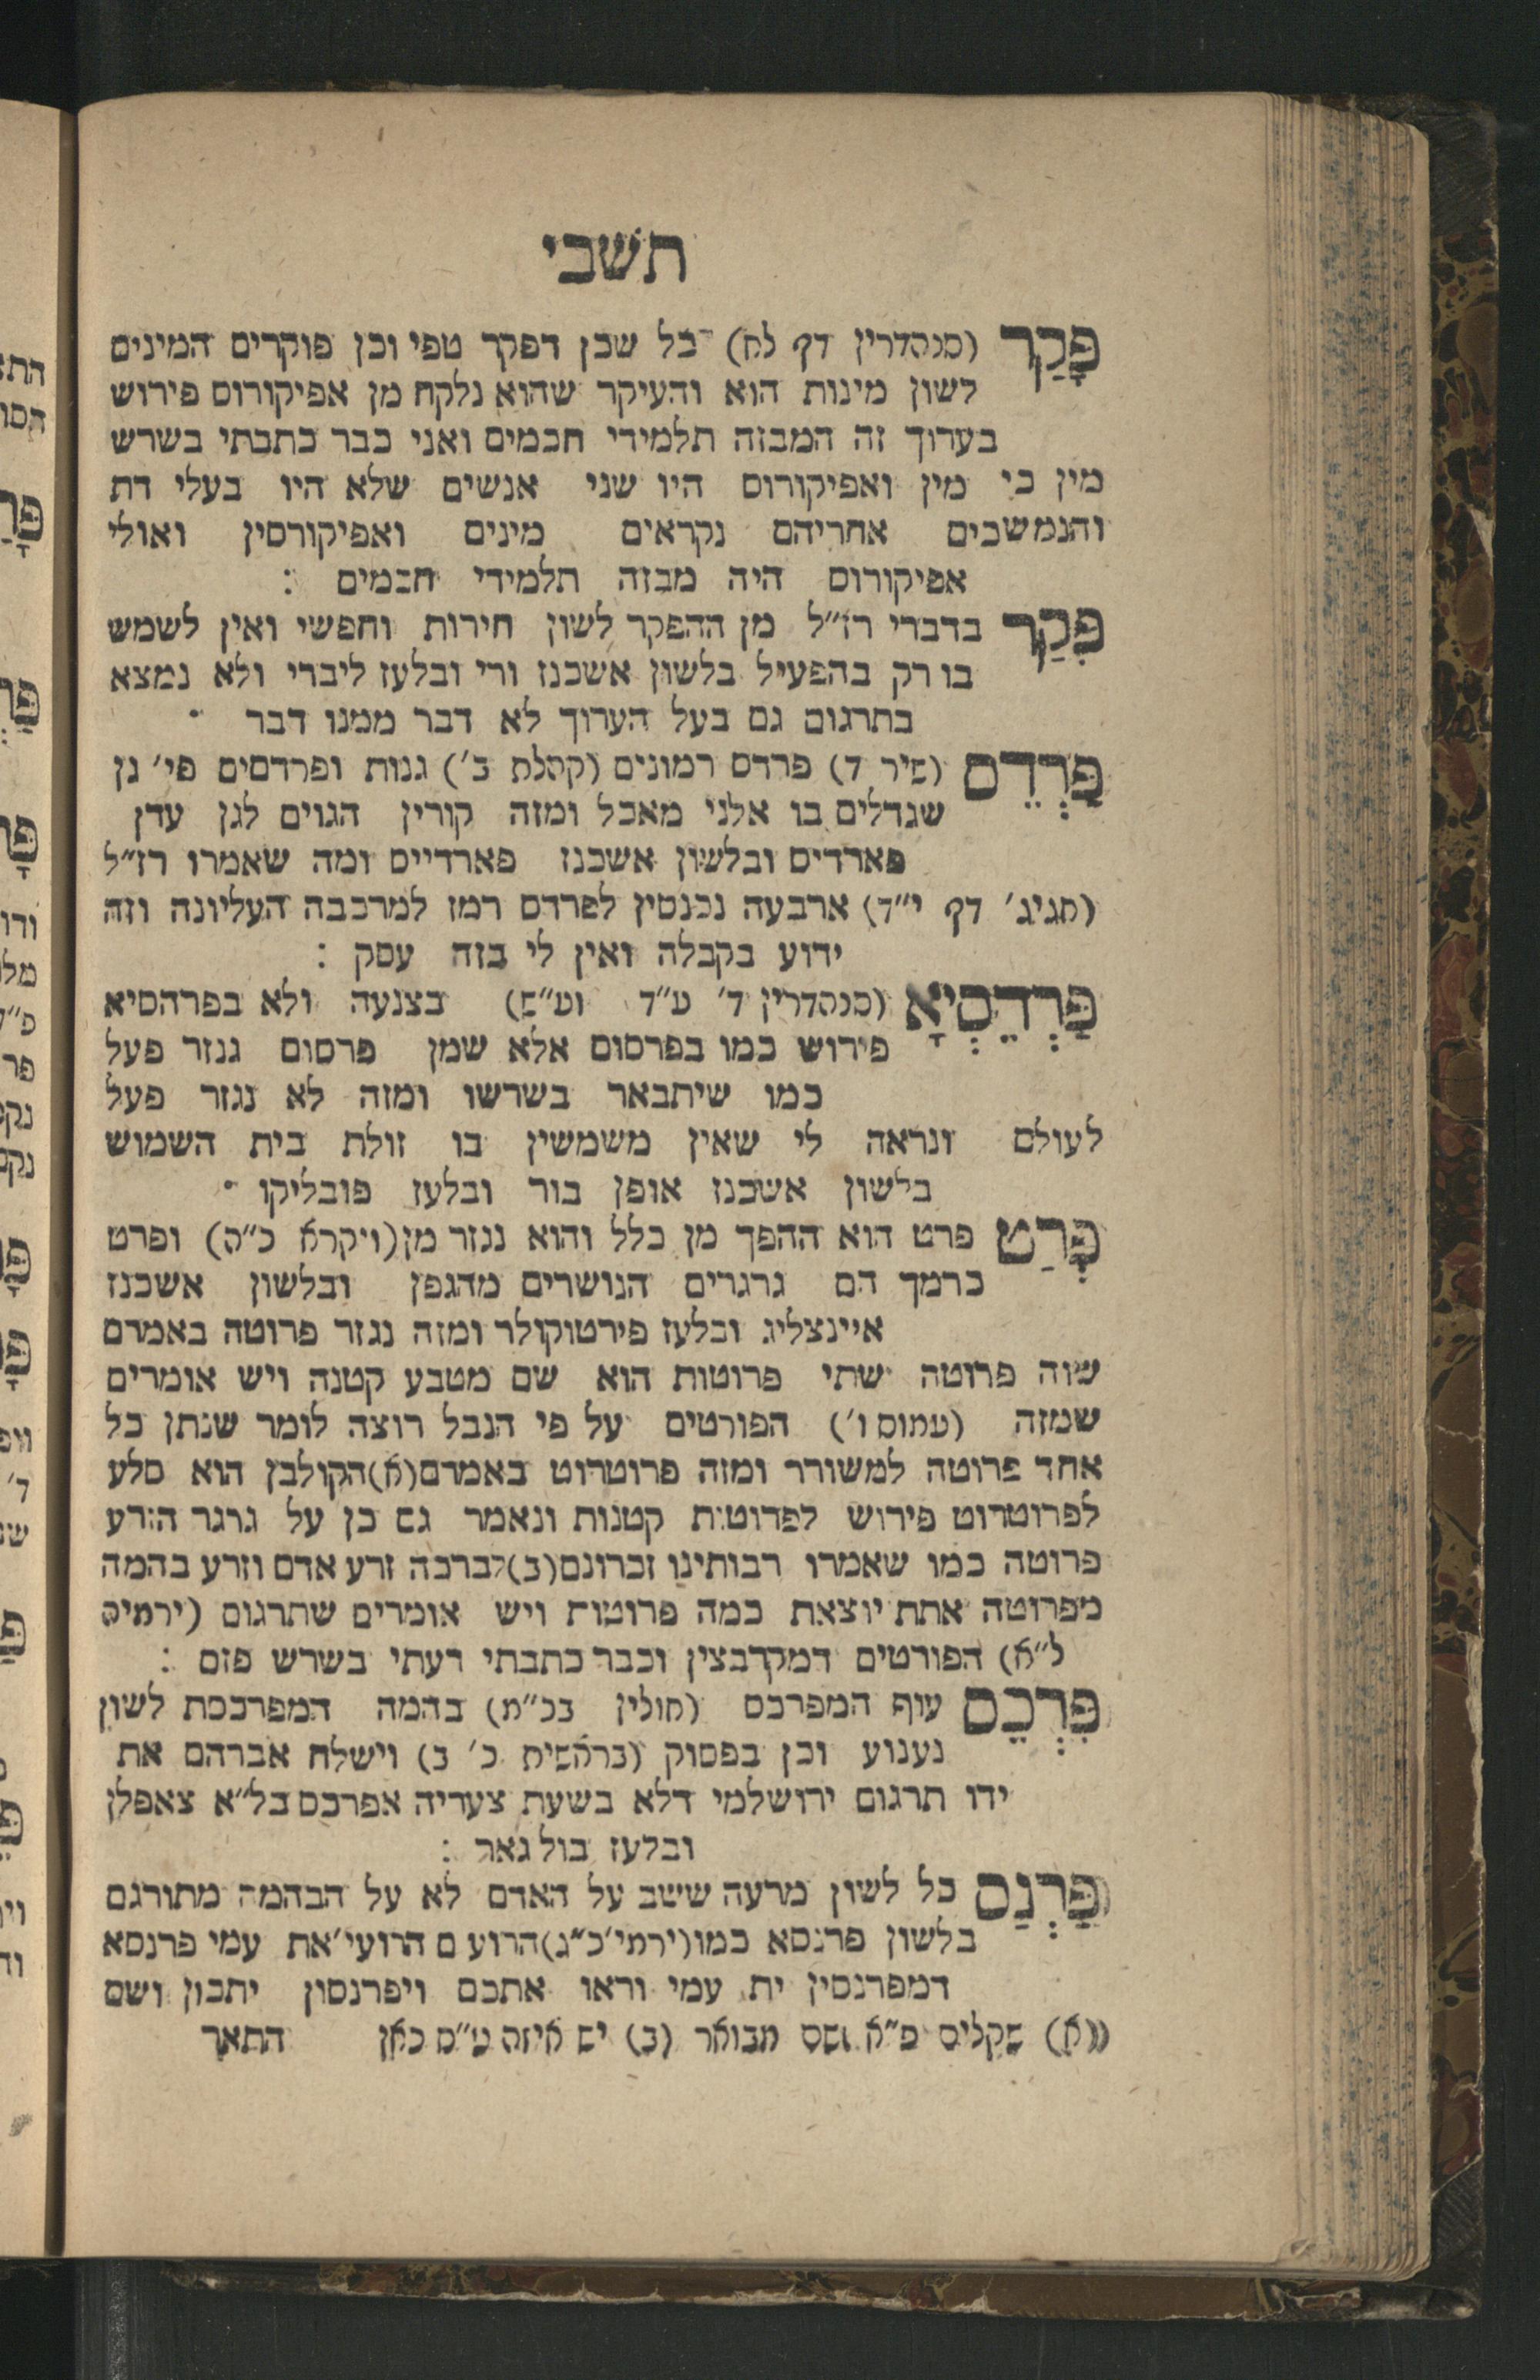 תשבי
פָּקַר (סנהדרין דף לח) כל שכן דפקר טפי וכן פוקרים המינים
לשון מינות הוא והעיקר שהוא נלקח מן אפיקורוס פירוש
בערוך זה המבזה תלמידי חכמים ואני כבר כתבתי בשרש
מין כי מין ואפיקורוס היו שני אנשים שלא היו בעלי דת
והנמשכים אחריהם נקראים מינים ואפיקורסין ואולי
אפיקורוס היה מבזה תלמידי חכמים :
פִּקַר בדברי רז״ל מן ההפקר לשון חירות וחפשי ואין לשמש
בו רק בהפעיל בלשון אשכנז ורי ובלעז ליברי ולא נמצא
בתרגום גם בעל הערוך לא דבר ממנו דבר ·
פַּרְדֵס (שיר ד) פרדס רמונים (קהלת ב׳) גנות ופרדסים פי׳ גן
שגדלים בו אלני מאכל ומזה קורין הגוים לגן עדן
פארדיס ובלשון אשכנז פארדייס ומה שאמרו רז״ל
(חגיג׳ דף י״ד) ארבעה נכנסין לפרדס רמז למרכבה העליונה וזה
ידוע בקבלה ואין לי בזה עסק :
פַּרְהֵסְיָא (סנהדרין ד׳ ע״ד וע״ש) בצנעה ולא בפרהסיא
פירוש כמו בפרסום אלא שמן פרסום גגזר פעל
כמו שיתבאר בשרשו ומזה לא נגזר פעל
לעולם ונראה לי שאין משמשין בו זולת בית השמוש
בלשון אשכנז אופן בור ובלעז פובליקו ·
פְּרַט פרט הוא ההפך מן כלל והוא נגזר מן (ויקרא כ״ה) ופרט
כרמך הם גרגרים הנושרים מהגפן ובלשון אשכנז
איינצליג ובלעז פירטוקולר ומזה נגזר פרוטה באמרם
שוה פרוטה שתי פרוטות הוא שם מטבע קטנה ויש אומרים
שמזה (עמוס ו׳) הפורטים על פי הנבל רוצה לומר שנתן כל
אחד פרוטה למשורר ומזה פרוטרוט באמרם (א) הקולבן הוא סלע
לפרוטרוט פירוש לפרוטות קטנות ונאמר גם כן על גרגר הזרע
פרוטה כמו שאמרו רבותינו זכרונם (ב) לברכה זרע אדם וזרע בהמה
מפרוטה אחת יוצאת כמה פרוטות ויש אומרים שתרגום (ירמיה
ל״א) הפורטים דמקרבצין וכבר כתבתי דעתי בשרש פזם :
פִּרְכֵס עוף המפרכס (חולין בכ״מ) בהמה המפרכסת לשון
נענוע וכן בפסוק (בראשית כ׳ ב) וישלח אברהם את
ידו תרגום ירושלמי דלא בשעת צעריה אפרכס בל״א צאפלן
ובלעז בולגאר :
פַּרְנַס כל לשון מרעה ששב על האדם לא על הבהמה מתורגם
בלשון פרנסא כמו (ירמי׳ כ״ג) הרועים הרועי׳ את עמי פרנסא
דמפרנסין ית עמי וראו אתכם ויפרנסון יתכון ושם
(א) שקלים פ״א ושם מבואר (ב) יש איזה ט״ס כאן התאר